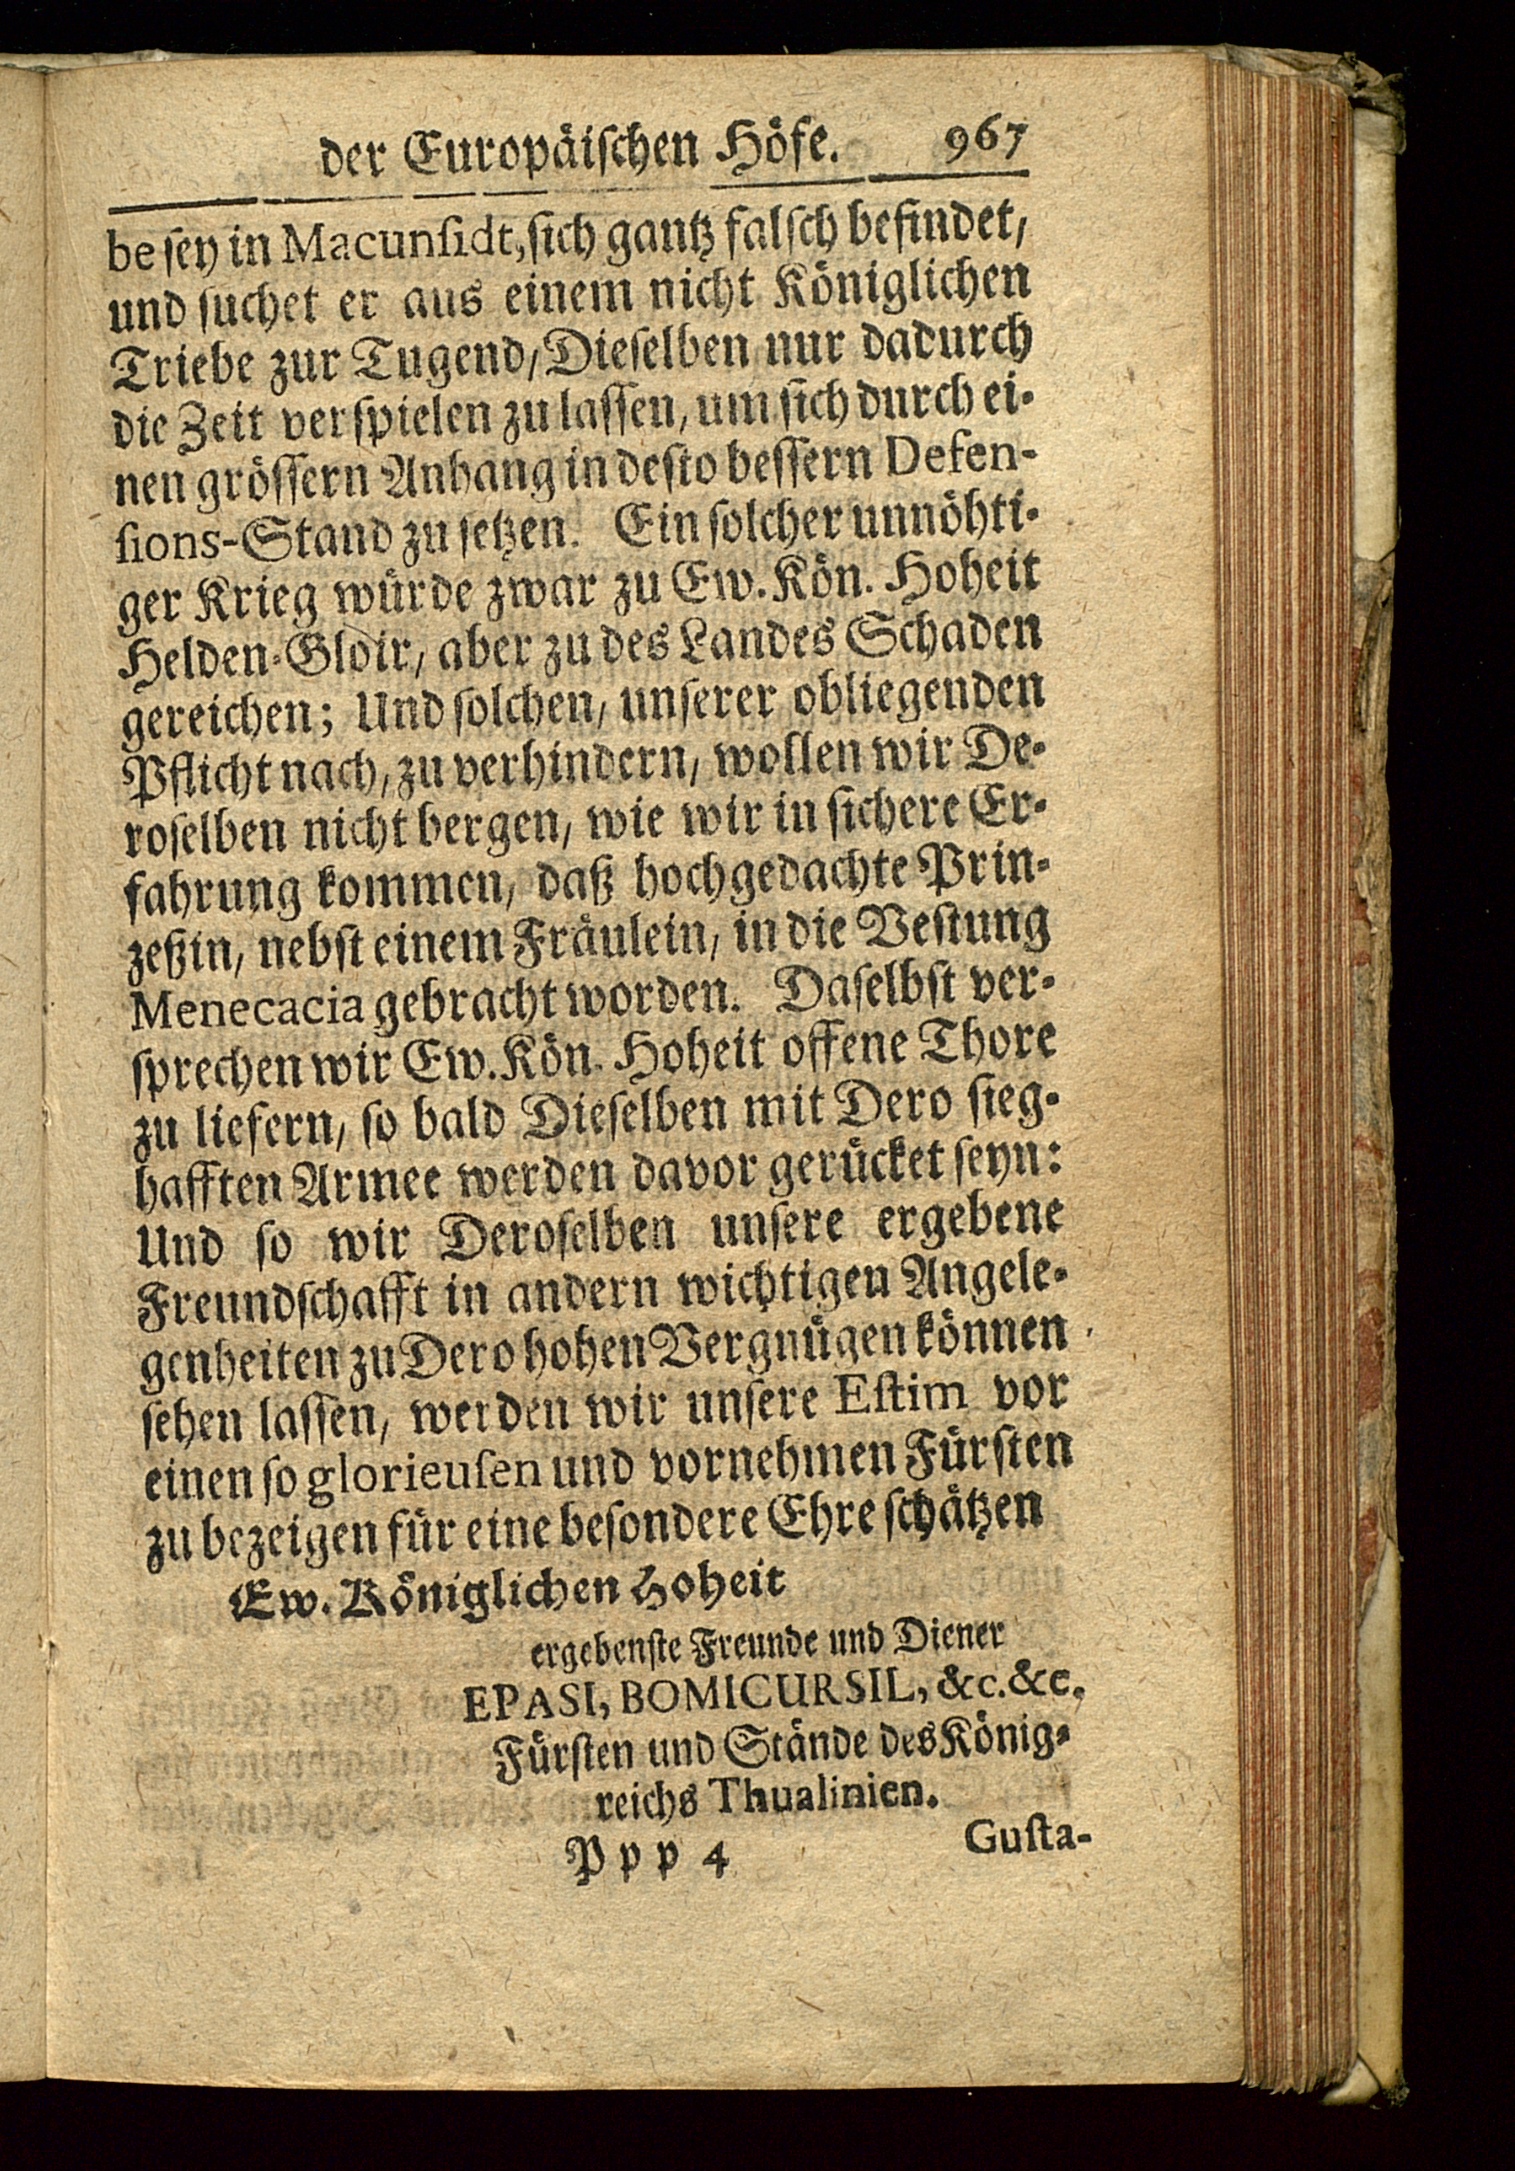 der Europäiſchen Höfe. 967
be ſey in Macunſidt, ſich gantz falſch befindet/
und ſuchet er aus einem nicht Königlichen
Triebe zur Tugend/ Dieſelben nur dadurch
die Zeit verſpielen zu laſſen, um ſich durch ei-
nen gröſſern Anhang in deſto beſſern Defen-
ſions-Stand zu ſetzen. Ein ſolcher unnöhti-
ger Krieg würde zwar zu Ew. Kön. Hoheit
Helden-Gloir/ aber zu des Landes Schaden
gereichen; Und ſolchen/ unſerer obliegenden
Pflicht nach, zu verhindern/ wollen wir De-
roſelben nicht bergen/ wie wir in ſichere Er-
fahrung kommen/ daß hochgedachte Prin-
zeßin, nebſt einem Fräulein/ in die Veſtung
Menecacia gebracht worden. Daſelbſt ver-
ſprechen wir Ew. Kön. Hoheit offene Thore
zu liefern/ ſo bald Dieſelben mit Dero ſieg-
hafften Armee werden davor gerücket ſeyn:
Und ſo wir Deroſelben unſere ergebene
Freundſchafft in andern wichtigen Angele-
genheiten zu Dero hohen Vergnügen können
ſehen laſſen, werden wir unſere Eſtim vor
einen ſo glorieuſen und vornehmen Fürſten
zu bezeigen für eine beſondere Ehre ſchätzen
Ew. Königlichen Hoheit
ergebenſte Freunde und Diener
EPASI, BOMICURSIL, &c. &c.
Fürſten und Stände des König-
reichs Thualinien.
P p p 4 Guſta-